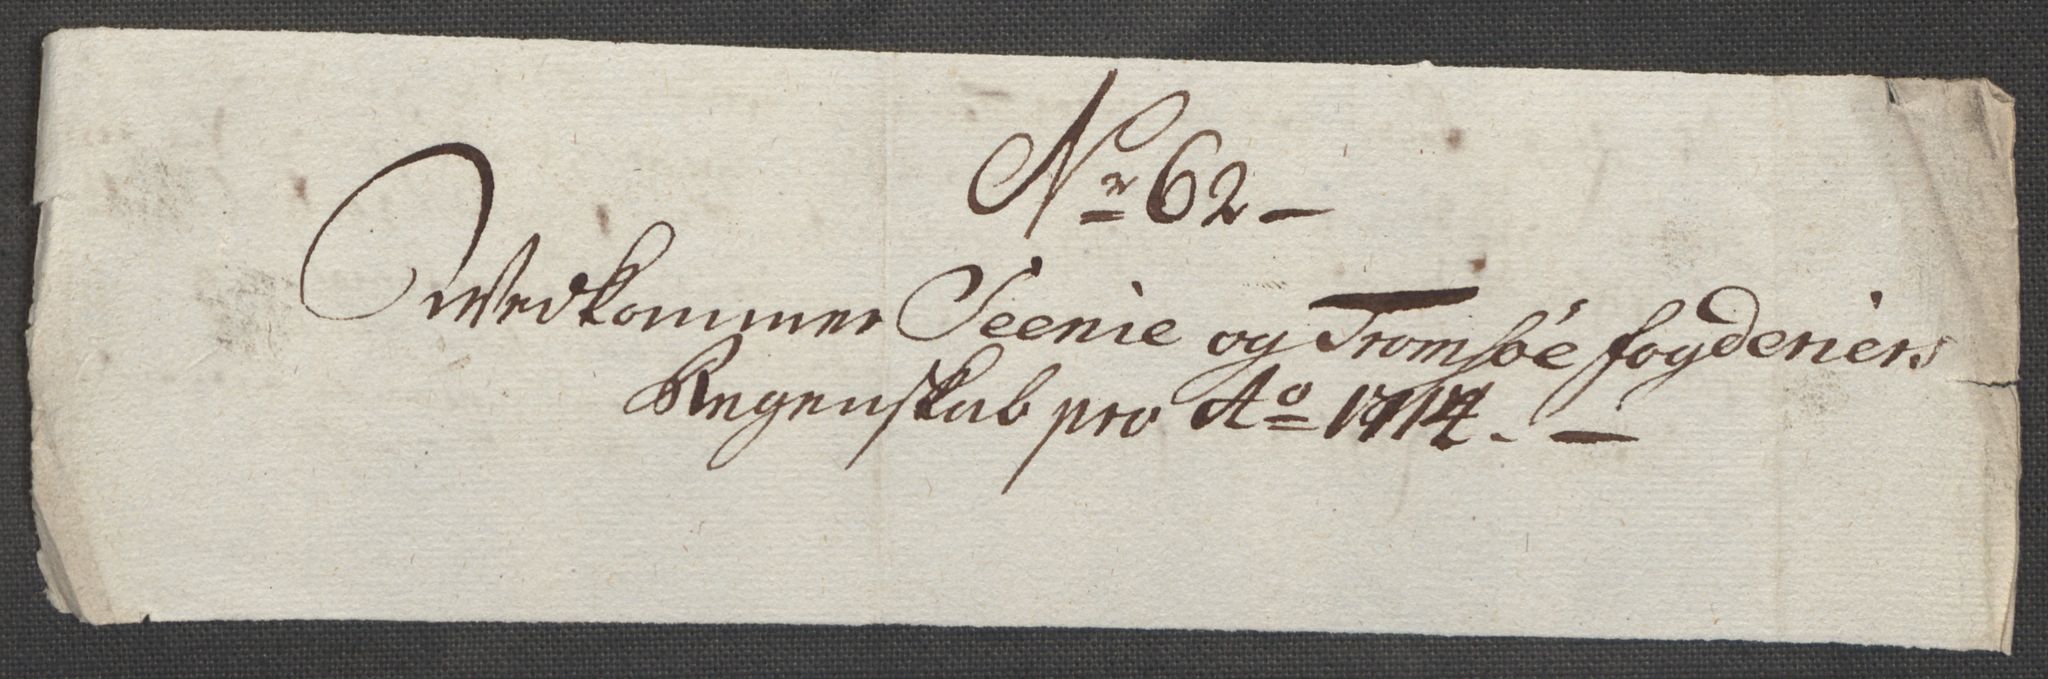 No 62 —
Vedkommer Seenie og Tromsöe fogderiers
Regenskab pro Ao 1714. —